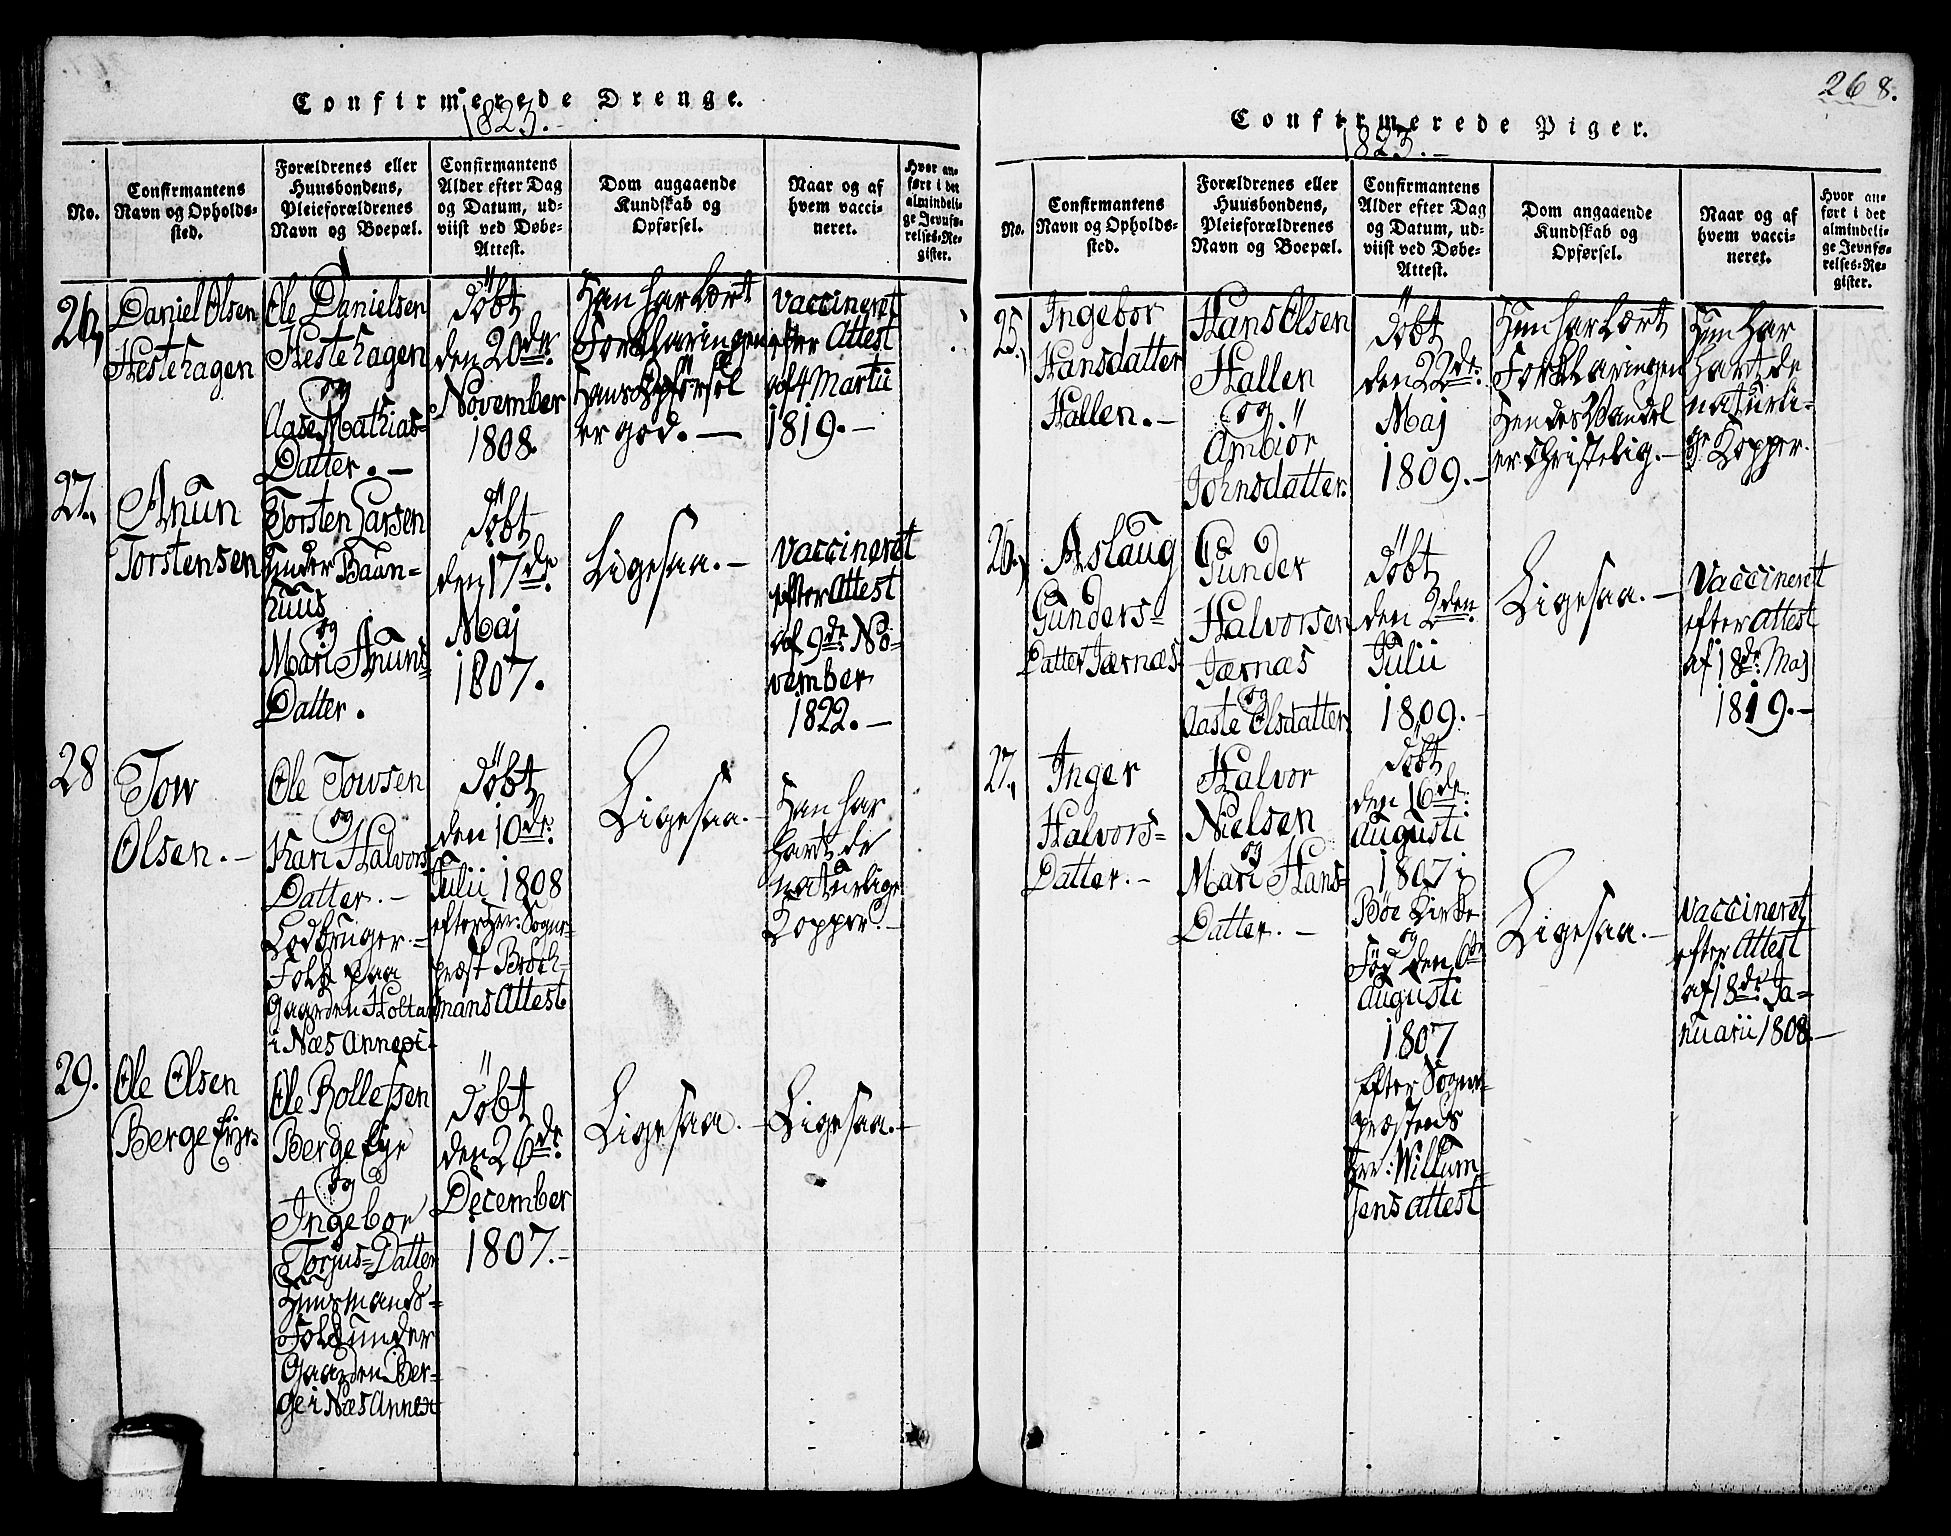 268.
Confirmerede Drenge.
1823.-
No.
Confirmantens
Navn og Opholds-
sted.
Forældrenes eller
Huusbondens,
Pleieforældrenes
Navn og Boepæl.
Confirmantens
Alder efter Dag
og Datum, ud-
viist ved Døbe-
Attest.
Dom angaaende
Kundskab og
Opførsel.
Naar og af
hvem vacci-
neret.
Hvor an-
ført i det
almindeli-
ge Jevnfø-
relses-Re-
gister.
26,
Daniel Olsen
Hestehagen
Ole Danielsen
Hestehagen
og
Aase Mathias-
Datter. -
Döbt
den 20de
November
1808.
Han har Lært
Forklaringen
Hans Opförsel
er god. -
Vaccineret
efter Attest
af 4 Martii
1819. -
27.
Anun
Torstensen
Torsten Larsen
under Baun-
huus
og
Mari Anuns-
Datter.
Döbt
den 17de
Maj
1807.
Ligesaa. -
Vaccineret
efter Attest
af 9de No-
vember
1822. -
28
Tow
Olsen. -
Ole Towsen
og
Kari Halvors
Datter. -
Lodbruger-
Folk paa
Gaarden Holtan
i Næs Annexi.
Döbt
den 10de
Julii 1808
efter Hr: Sogne-
præst Broch-
mans Attest
Ligesaa. -
Han har
hart de
naturlige
Kopper. -
29.
Ole Olsen
Berge Eye
Ole Rollefsen
Berge Eye
og
Ingebor
Torjus-Datter
Huusmands-
Folk under
Gaarden Ber-
ge i Næs Annex
Döbt
den 26de
December
1807. -
Ligesaa. -
Ligesaa. -
Confirmerede Piger.
1823. -
No.
Confirmantens
Navn og Opholds-
sted.
Forældrenes eller
Huusbondens,
Pleieforældrenes
Navn og Boepæl.
Confirmantens
Alder efter Dag
og Datum, ud-
viist ved Døbe-
Attest.
Dom angaaende
Kundskab og
Opførsel.
Naar og af
hvem vacci-
neret.
Hvor an-
ført i det
almindeli-
ge Jevnfø-
relses-Re-
gister.
25.
Ingebor
Hansdatter
Hallen. -
Hans Olsen
Hallen
og
Ambiör
Johnsdatter.
Döbt
den 22de
Maj
1809. -
Hun har Lært
Forklaringen
Hendes Vandel
er Christelig. -
Hun har
hart de
naturli-
ge Kopper.
26,
Aslaug
Gunders-
Datter Jærnæs
Gunder
Halvorsen
Jærnæs
og
Aaste Olsdatter
Döbt
den 2den
Julii
1809. -
Ligesaa. -
Vaccineret
efter Attest
af 18de Maj
1819. -
27.
Inger
Halvors-
Datter. -
Halvor
Nielsen
og
Mari Hans-
Datter. -
Döbt
den 16de
Augusti
1807 i
Böe Kirke
og
Föd den 6te
Augusti
1807
Efter Sogne-
præstens
Hr: Willum-
sens Attest
Ligesaa. -
Vaccineret
efter Attest
af 18de Ja-
nuarii 1808. -